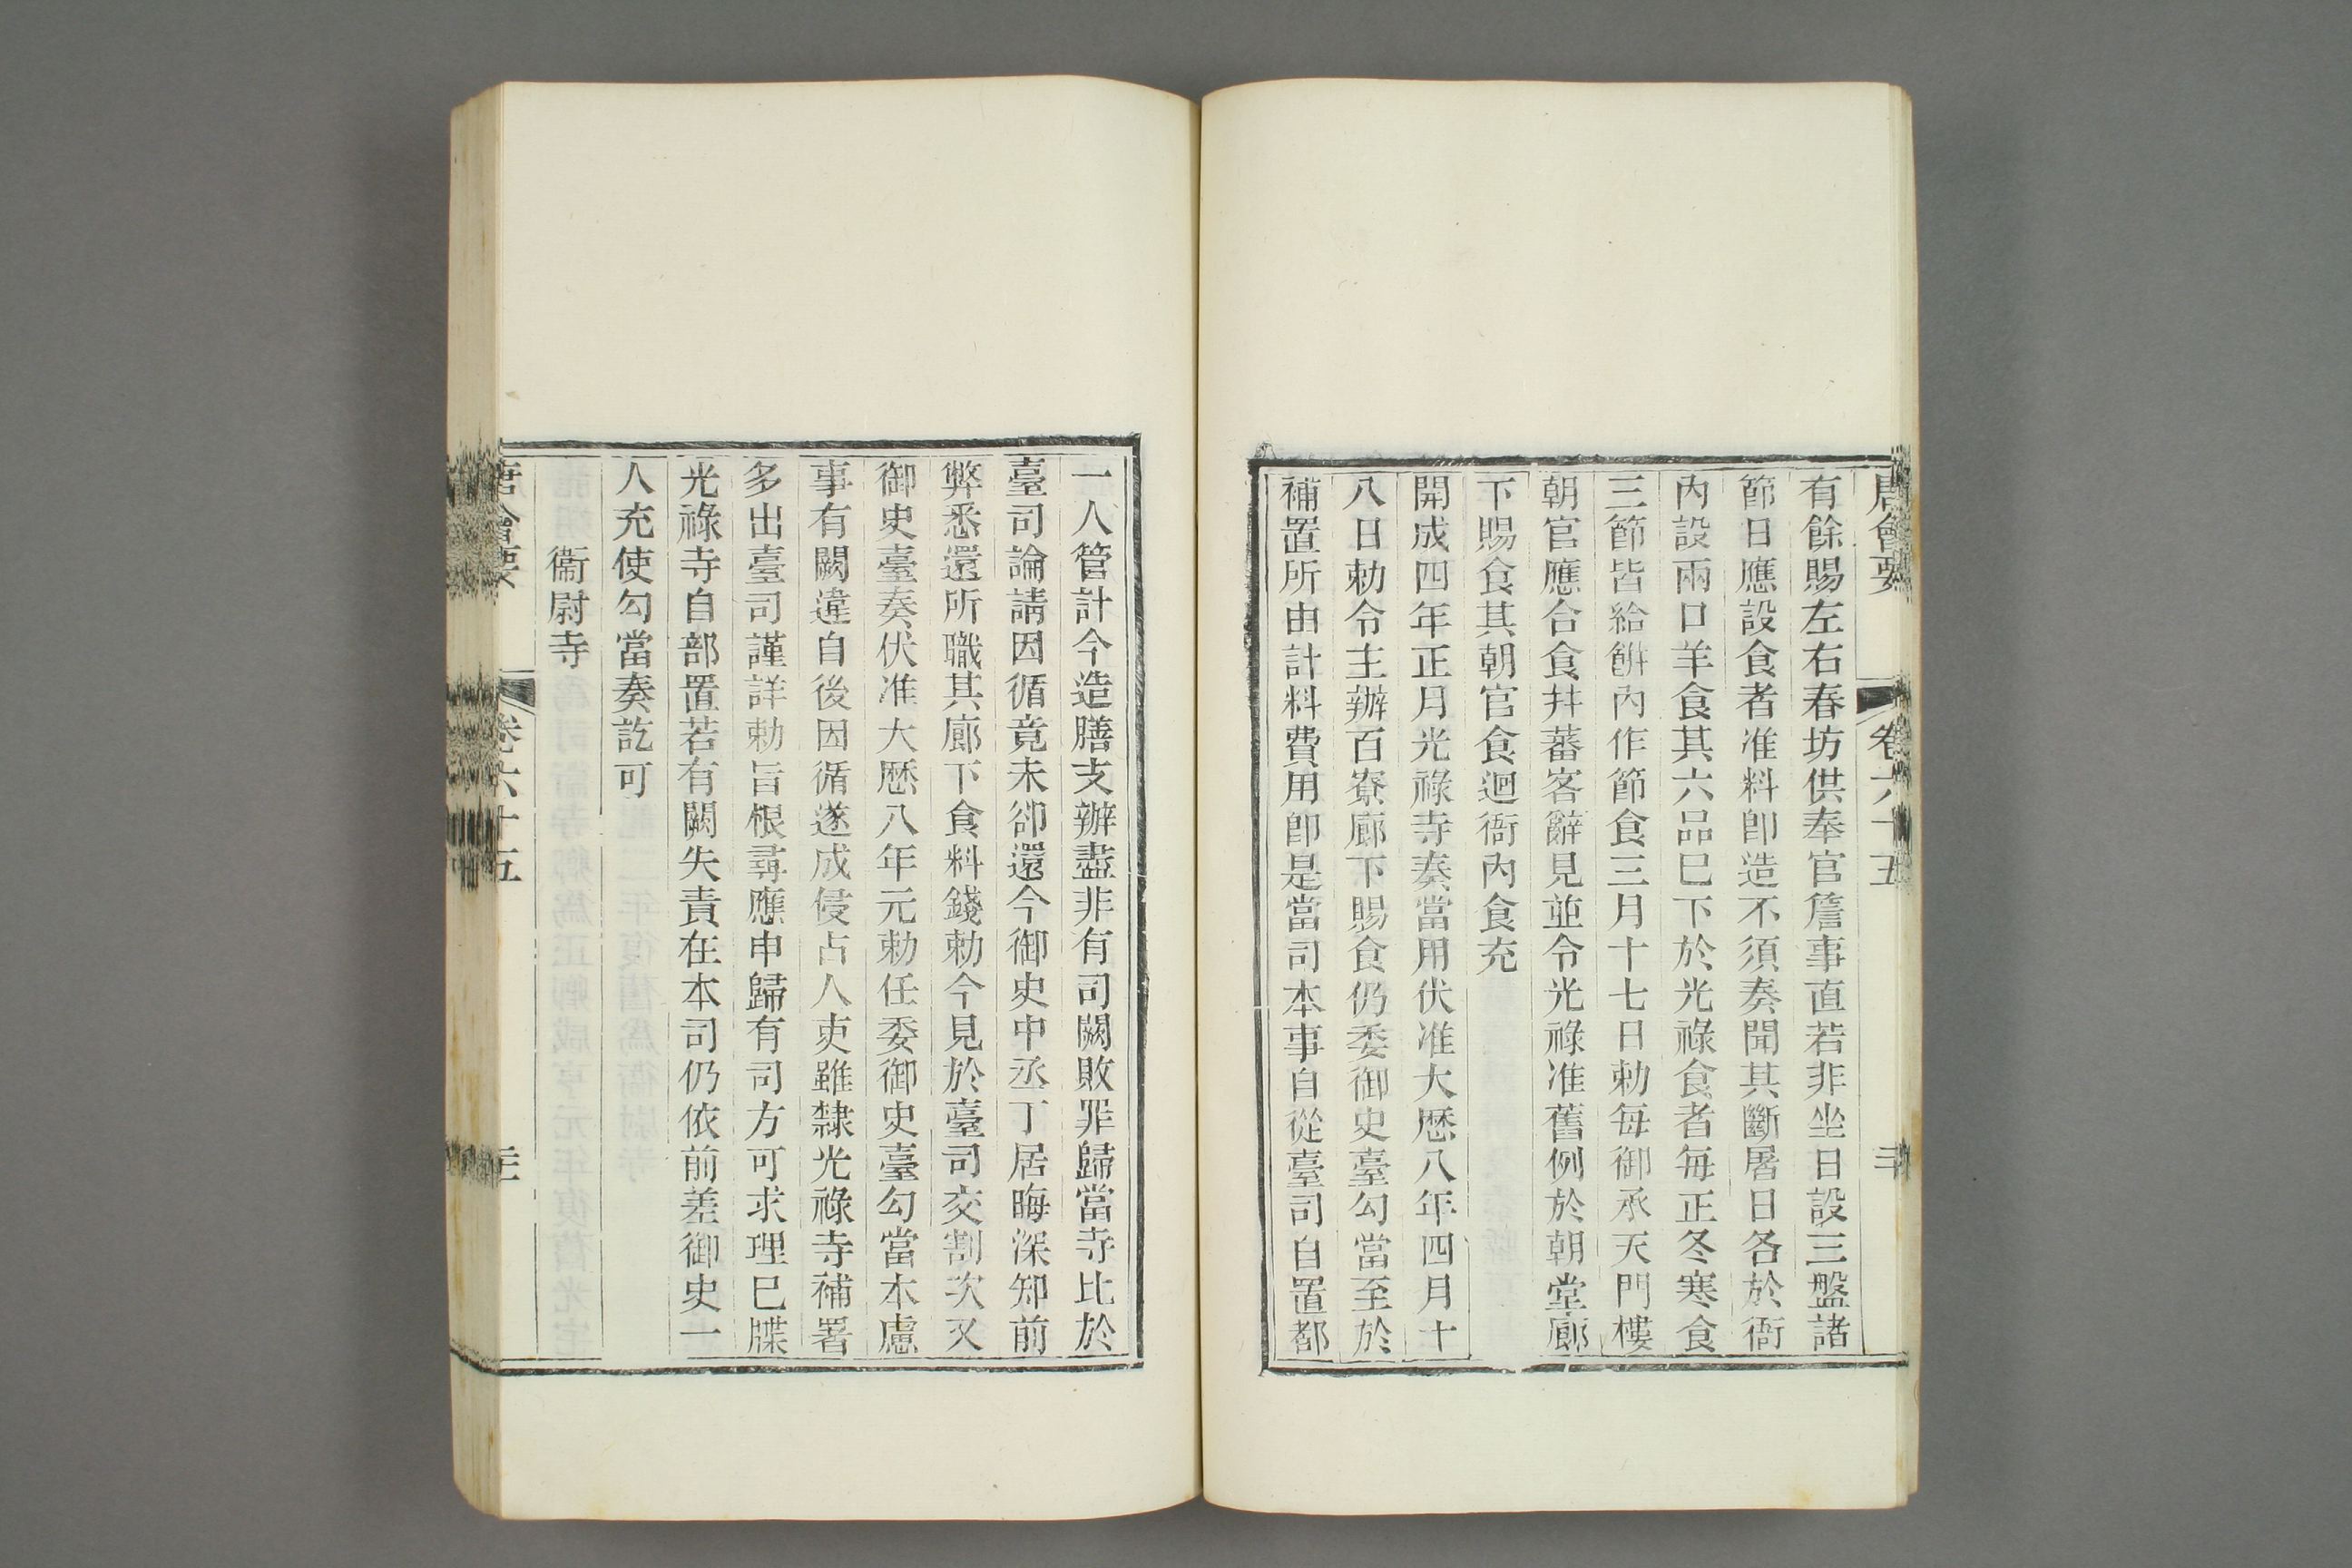 唐會要 卷六十五
有餘賜左右春坊供奉官詹事直若非坐日設三盤諸
節日應設食者准料卽造不須奏聞其斷屠日各於衙
內設兩口羊食其六品巳下於光祿食者每正冬寒食
三節皆給餅內作節食三月十七日勅每御承天門樓
朝官應合食幷蕃客辭見並令光祿准舊例於朝堂廊
下賜食其朝官食迴衙內食充
開成四年正月光祿寺奏當用伏准大歷八年四月十
八日勅令主辦百寮廊下賜食仍委御史臺勾當至於
補置所由計料費用卽是當司本事自從臺司自置都
一人管計今造膳支辦盡非有司闕敗罪歸當寺比於
臺司論請因循竟未卻還今御史中丞丁居晦深知前
弊悉還所職其廊下食料錢勅今見於臺司交割次又
御史臺奏伏准大歷八年元勅任委御史臺勾當本慮
事有闕違自後因循遂成侵占人吏雖隸光祿寺補署
多出臺司謹詳勅旨根尋應申歸有司方可求理巳牒
光祿寺自部置若有闕失責在本司仍依前差御史一
人充使勾當奏訖可
衞尉寺
唐會要 卷六十五